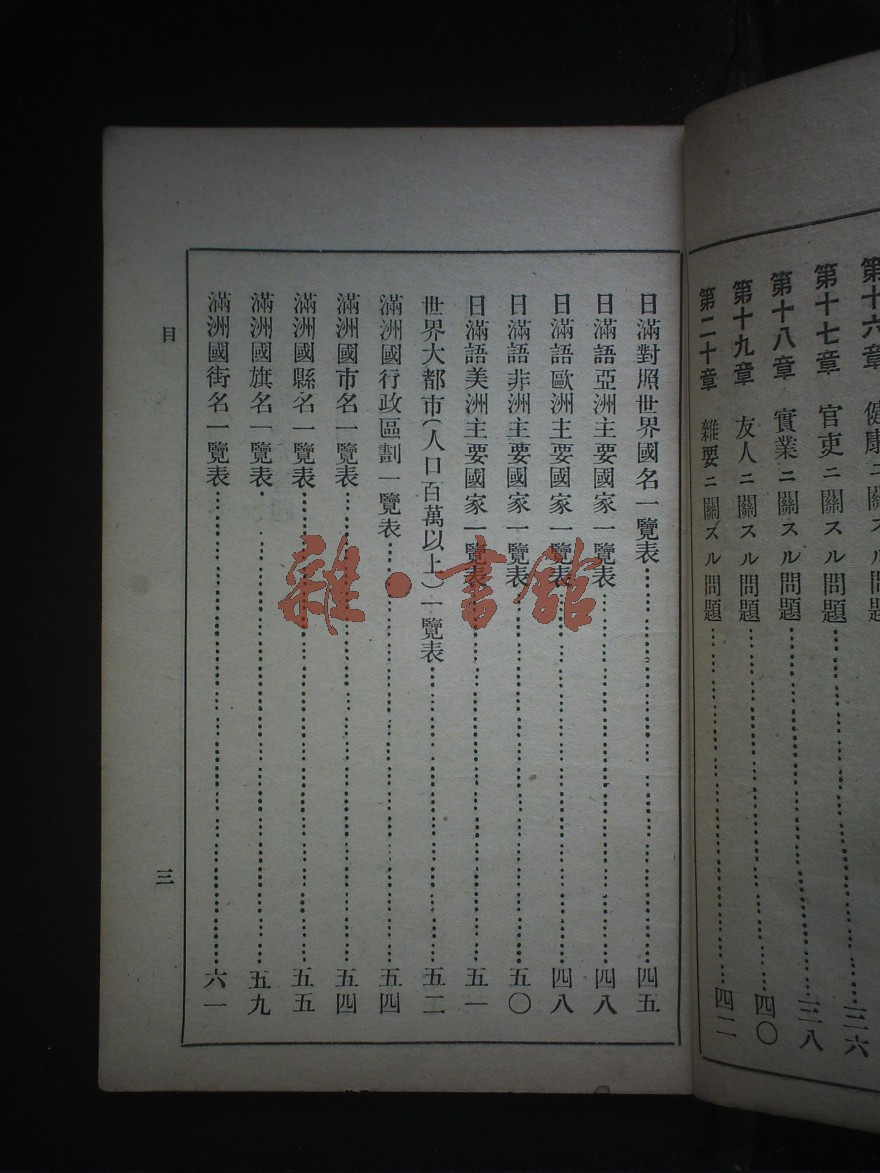 第十六章 健康ニ關スル問題……三六
第十七章 官吏ニ關スル問題……三八
第十八章 實業ニ關スル問題……三八
第十九章 友人ニ關スル問題……四〇
第二十章 雜要ニ關スル問題……四二
日滿對照世界國名一覽表……四五
日滿語亞洲主要國家一覽表……四八
日滿語歐洲主要國家一覽表……四八
日滿語非洲主要國家一覽表……五〇
日滿語美洲主要國家一覽表……五一
世界大都市(人口百萬以上)一覽表……五二
滿洲國行政區劃一覽表……五四
滿洲國市名一覽表……五四
滿洲國縣名一覽表……五五
滿洲國旗名一覽表……五九
滿洲國街名一覽表……六一
目
三
雜·書館